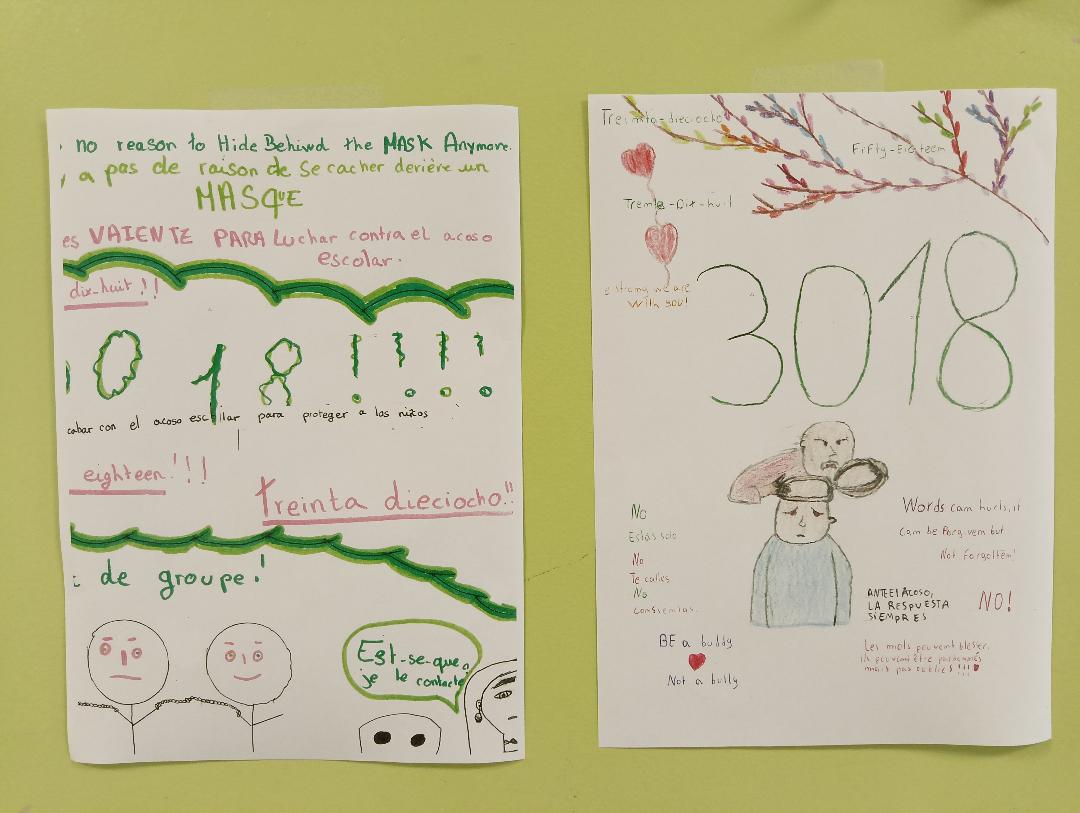 no reason to Hide Behind the MASK Anymore.
, a pas de raison de se cacher derière un
MASQUE
es VAlENTE PARA Luchar contra el acoso
escolar.
dix-huit !!
0 18 !!!!
cabar con el acoso escolar para proteger a los niños
eighteen!!!
treinta dieciocho!!
de groupe!
Est-se-que
je le contacte
Treinta-dieciocho
Fifty-Eighteen
Trente-Dix-huit
e strong we are
With you!
3018
No
Estás solo
No
Te calles
No
consientas.
Words can hurts, it
Can be Forgiven but
Not Forgotten!
ANTE El Acoso,
LA RESPUESTA
SiEMPRE ES
NO!
BE a buddy
Not a bully
Les mots peuvent blesser,
ils peuvent être pardonnés
mais pas oubliés !!!